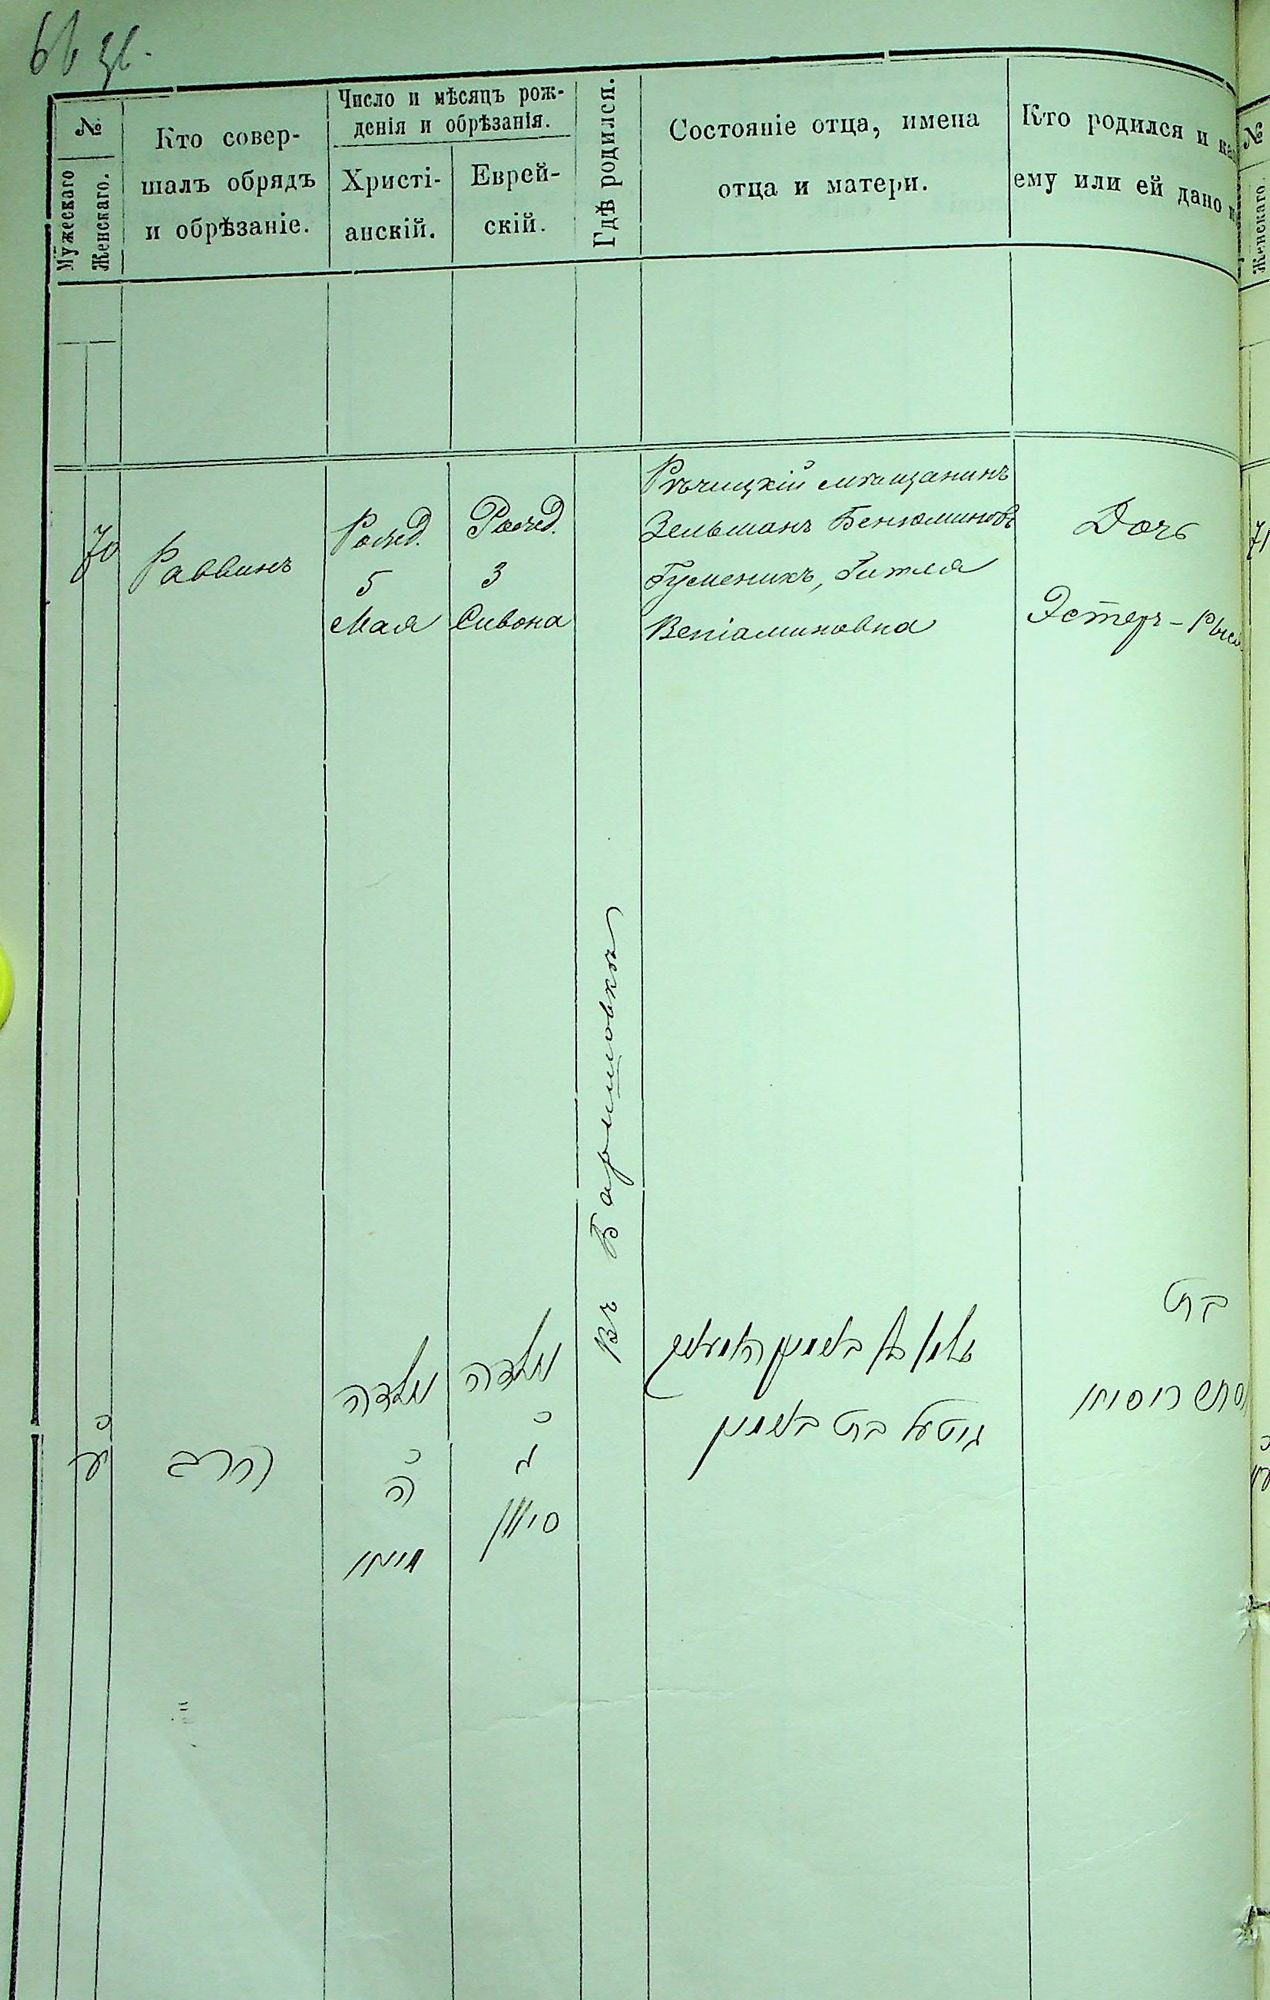 66
№
Мужескаго
Женскаго.
Кто совер-
шалъ обрядъ
и обрѣзаніе.
Число и мѣсяцъ рож-
денія и обрѣзанія.
Христі-
анскій.
Еврей-
скій.
Гдѣ родился.
Состояніе отца, имена
отца и матери.
Кто родился и
ему или ей дано
№
Женскаго.
70
Раввинъ
Рожд.
5
Мая
Рожд.
3
Сивона
Въ Барышовкѣ
Рѣчицкій мѣщанинъ
Зельманъ Бенюминовъ
Гуменикъ, Гитля
Веніаминовна
Дочь
Эстеръ-
71
ע
הרב
נולדה
ה
מאיי
נולדה
ג
סיון
זלמן בן בנימין
גיטל בת בנימין
בת